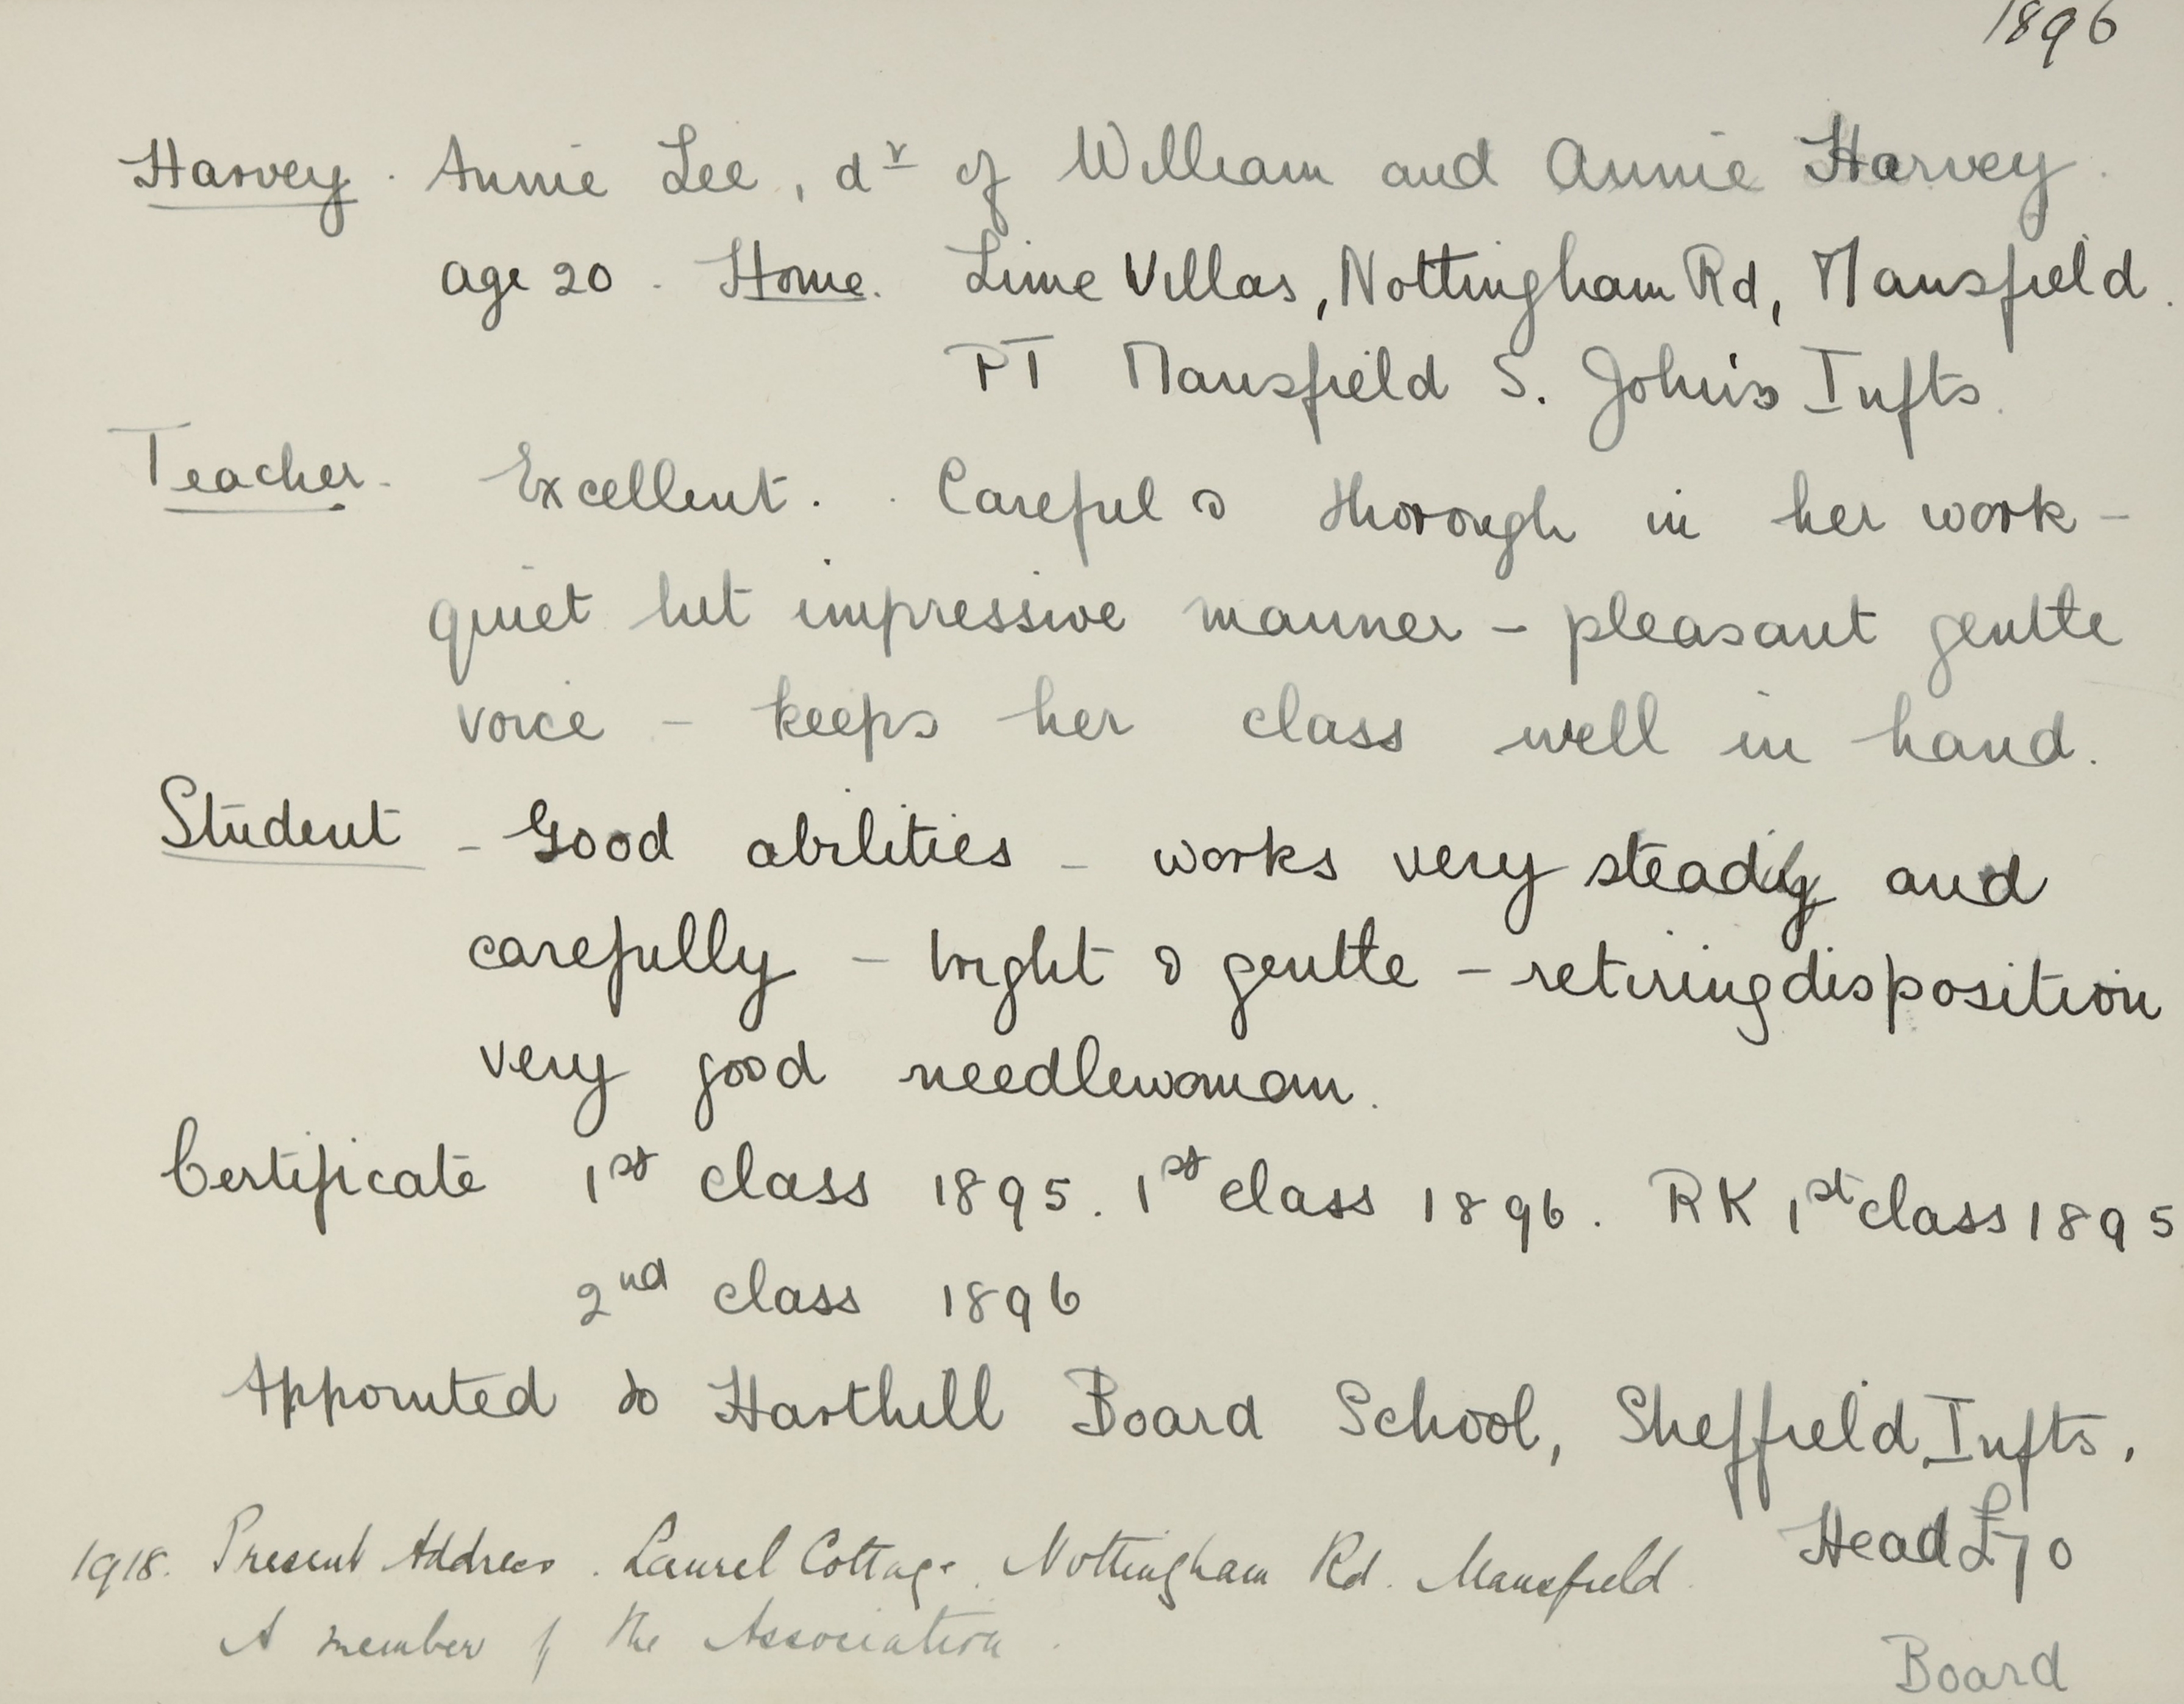 1896
Harvey. Annie Lee, dr of William and Annie Harvey.
age 20. Home. Lime Villas, Nottingham Rd, Mansfield.
PT Mansfield S. John's Infts.
Teacher - Excellent. Careful & thorough in her work -
quiet but impressive manner - pleasant gentle
voice - keeps her class well in hand.
Student - Good abilities - works very steadily and
carefully - bright & gentle - retiring disposition
very good needlewoman.
Certificate 1st class 1895. 1st class 1896. RK 1st class 1895
2nd class 1896
Appointed to Harthill Board School, Sheffield, Infts,
Head £70
1918. Present Address. Laurel Cottage. Nottingham Rd. Mansfield.
A member of the Association.
Board